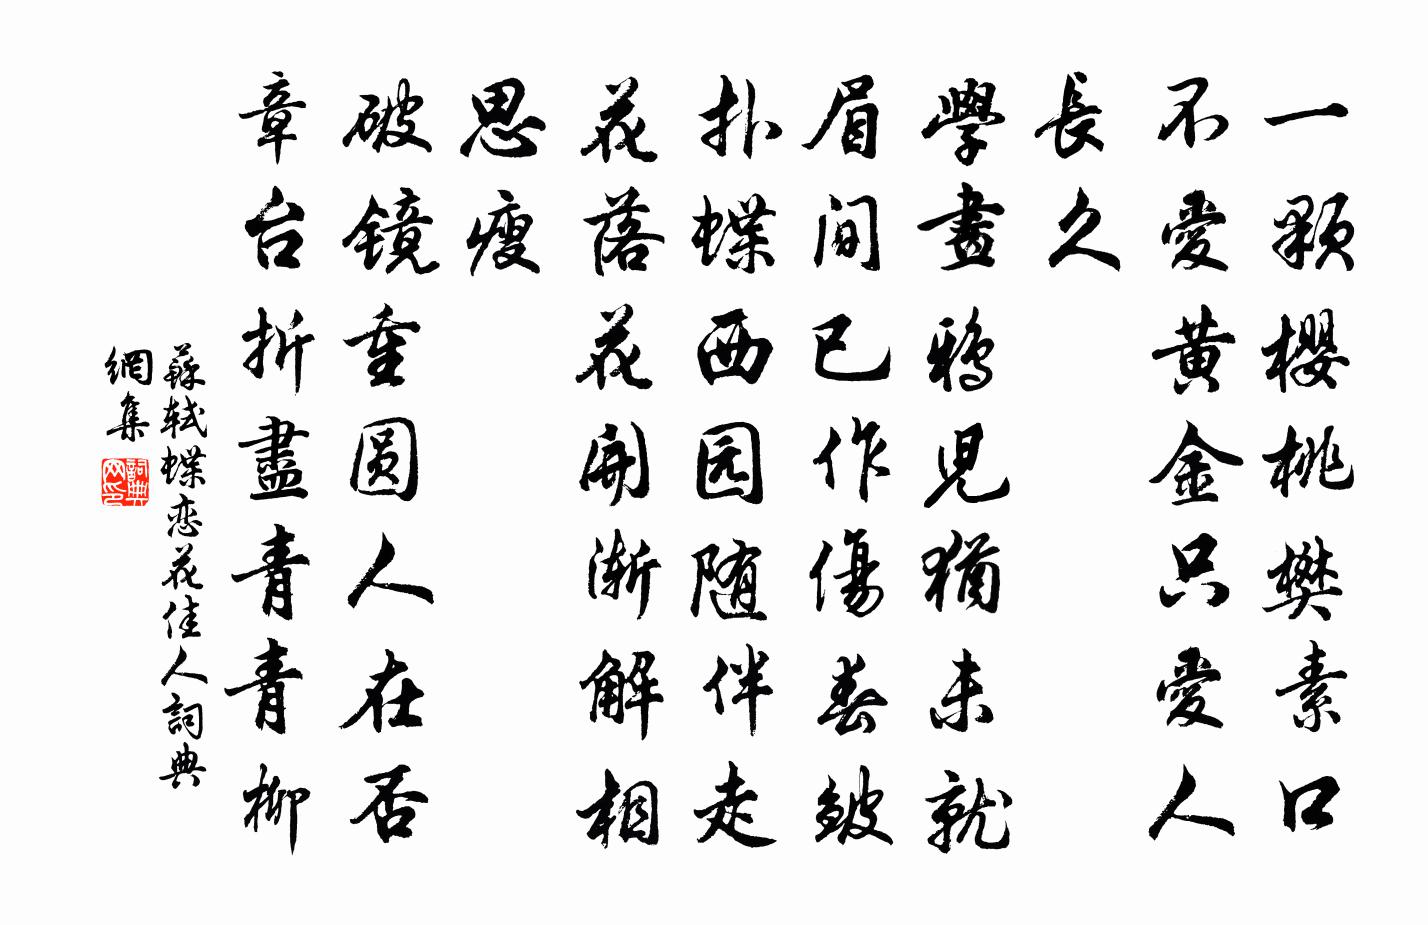 一颗樱桃樊素口
不愛黄金只愛人
長久
學畫鴉兒猶未就
眉间已作傷春皱
扑蝶西园随伴走
花落花開渐解相
思瘦
破镜重圆人在否
章台折盡青青柳
蘇轼蝶恋花佳人詞典
網集
詞典
网印